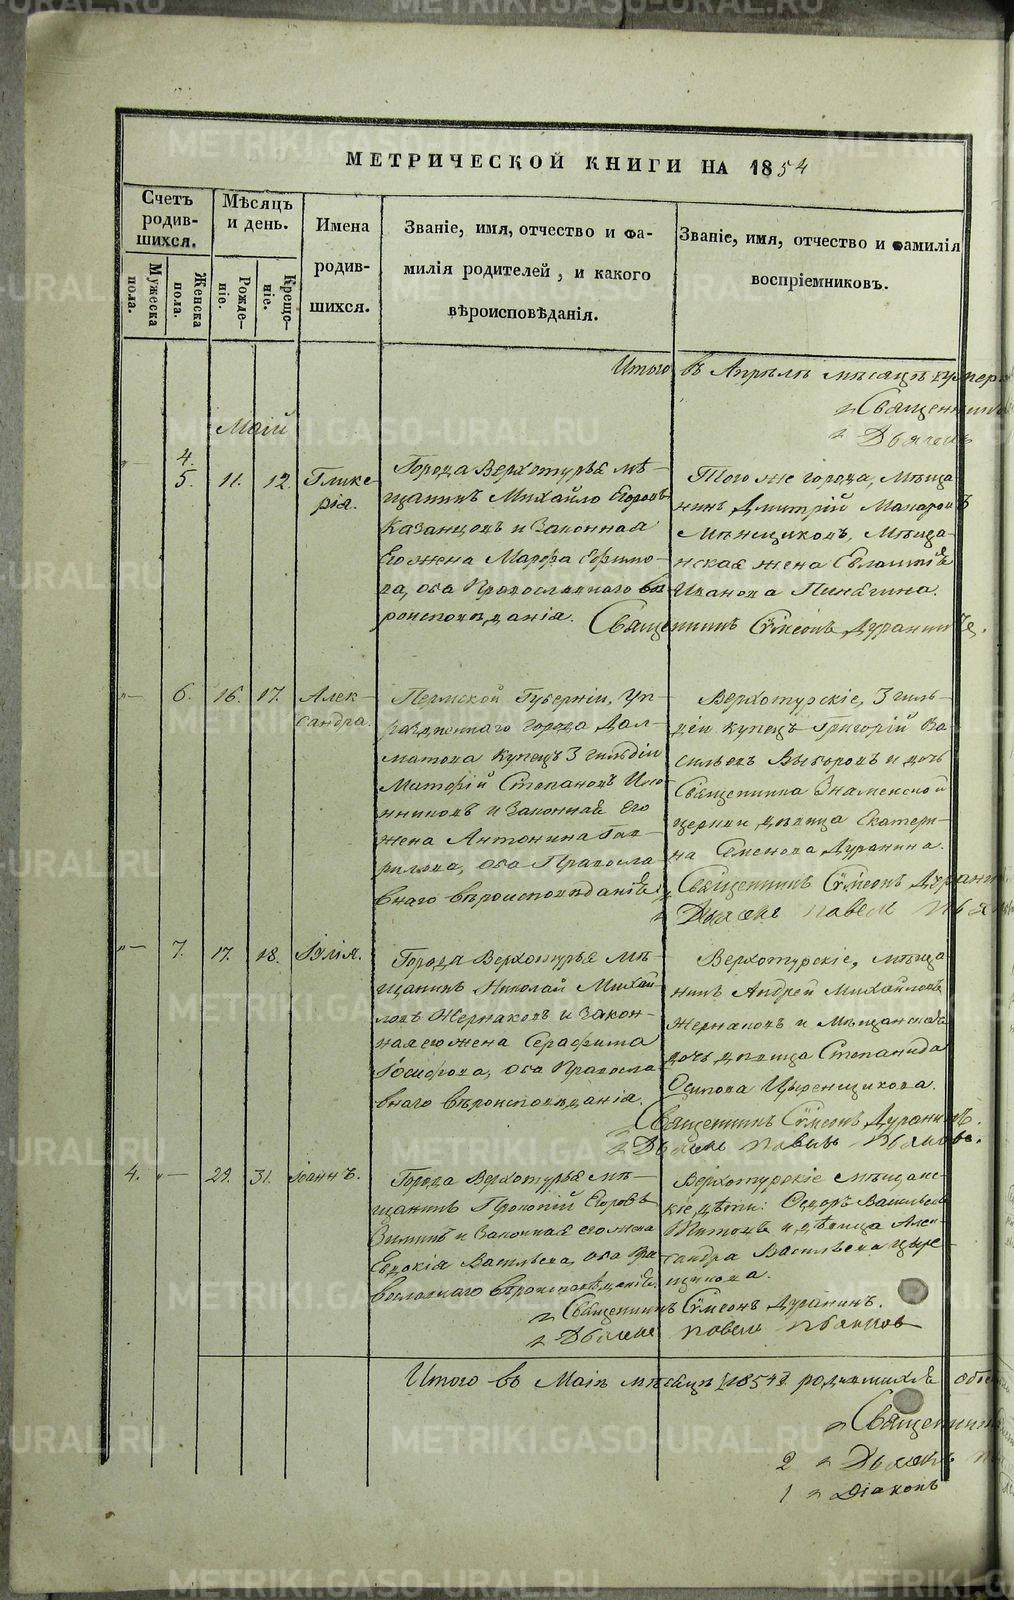 МЕТРИЧЕСКОЙ КНИГИ НА 1854
Счетъ родившихся.
Мужеска пола.
Женска пола.
Мѣсяцъ и день.
Рожденіе.
Крещеніе.
Имена родившихся.
Званіе, имя, отчество и фамилія родителей, и какого вѣроисповѣданія.
Званіе, имя, отчество и фамилія воспріемниковъ.
Итого въ Апрѣлѣ мѣсяцѣ
Священник
Дьячекъ
Маій
4.
5. 11. 12. Гликерія.
Города Верхотурья мѣ-
щанинъ Михайло Егоровъ
Казанцовъ и Законная
Его жена Марфа Ефимо-
ва, оба Православнаго вѣ-
роисповѣданія.
Того же города, мѣща
нинъ Дмитрій Макаровъ
Мѣнщиковъ, Мѣща-
нская жена Евлампія
Иванова Пинягина.
Священникъ Сѵмеонъ Дуранинъ
6. 16. 17. Алек-
сандра.
Пермской Губерніи, уп-
раздненнаго города Дал-
матова купецъ 3 гильдіи
Степановъ
и Законная Его
жена Антонина Гав-
рилова, оба Правосла
внаго вѣроисповѣданія
Верхотурскіе, 3 гиль-
діи купецъ Григорій Ва-
сильевъ Выборовъ и дочь
Священника Знаменской
церкви дѣвица Екатери-
на Семенова Дуранина.
Священникъ Сѵмеонъ Дуранин
Дьячекъ Павелъ
7. 17. 18. Іулія.
Города Верхотурья мѣ-
щанинъ Николай Михай-
ловъ Жернаковъ и Закон-
ная его жена Серафима
Іосифова, оба Правосла
внаго вѣроисповѣданія.
Верхотурскіе, мѣща
нинъ Андрей Михайловъ
Жернаковъ и мѣщанская
дочь дѣвица Степанида
Осипова Цыренщикова.
Священникъ Сѵмеонъ Дуранинъ.
Дьячекъ Павелъ
4. 29. 31. Іоаннъ.
Города Верхотурья мѣ-
щанинъ Прокопій Егоровъ
Зиминъ и Законная его жена
Евдокія Васильева, оба Пра
вославнаго вѣроисповѣданія.
Верхотурскіе мѣщанс-
кіе дѣти: Ѳедоръ Васильевъ
и дѣвица Алек-
сандра Васильева Цыре-
щикова.
Священникъ Сѵмеонъ Дуранинъ.
Дьячекъ Павелъ
Итого въ Маіѣ мѣсяцѣ 1854 г. родившихся обоего
Священникъ
2 Дьячекъ
1 Діаконъ
METRIKI.GASO-URAL.RU